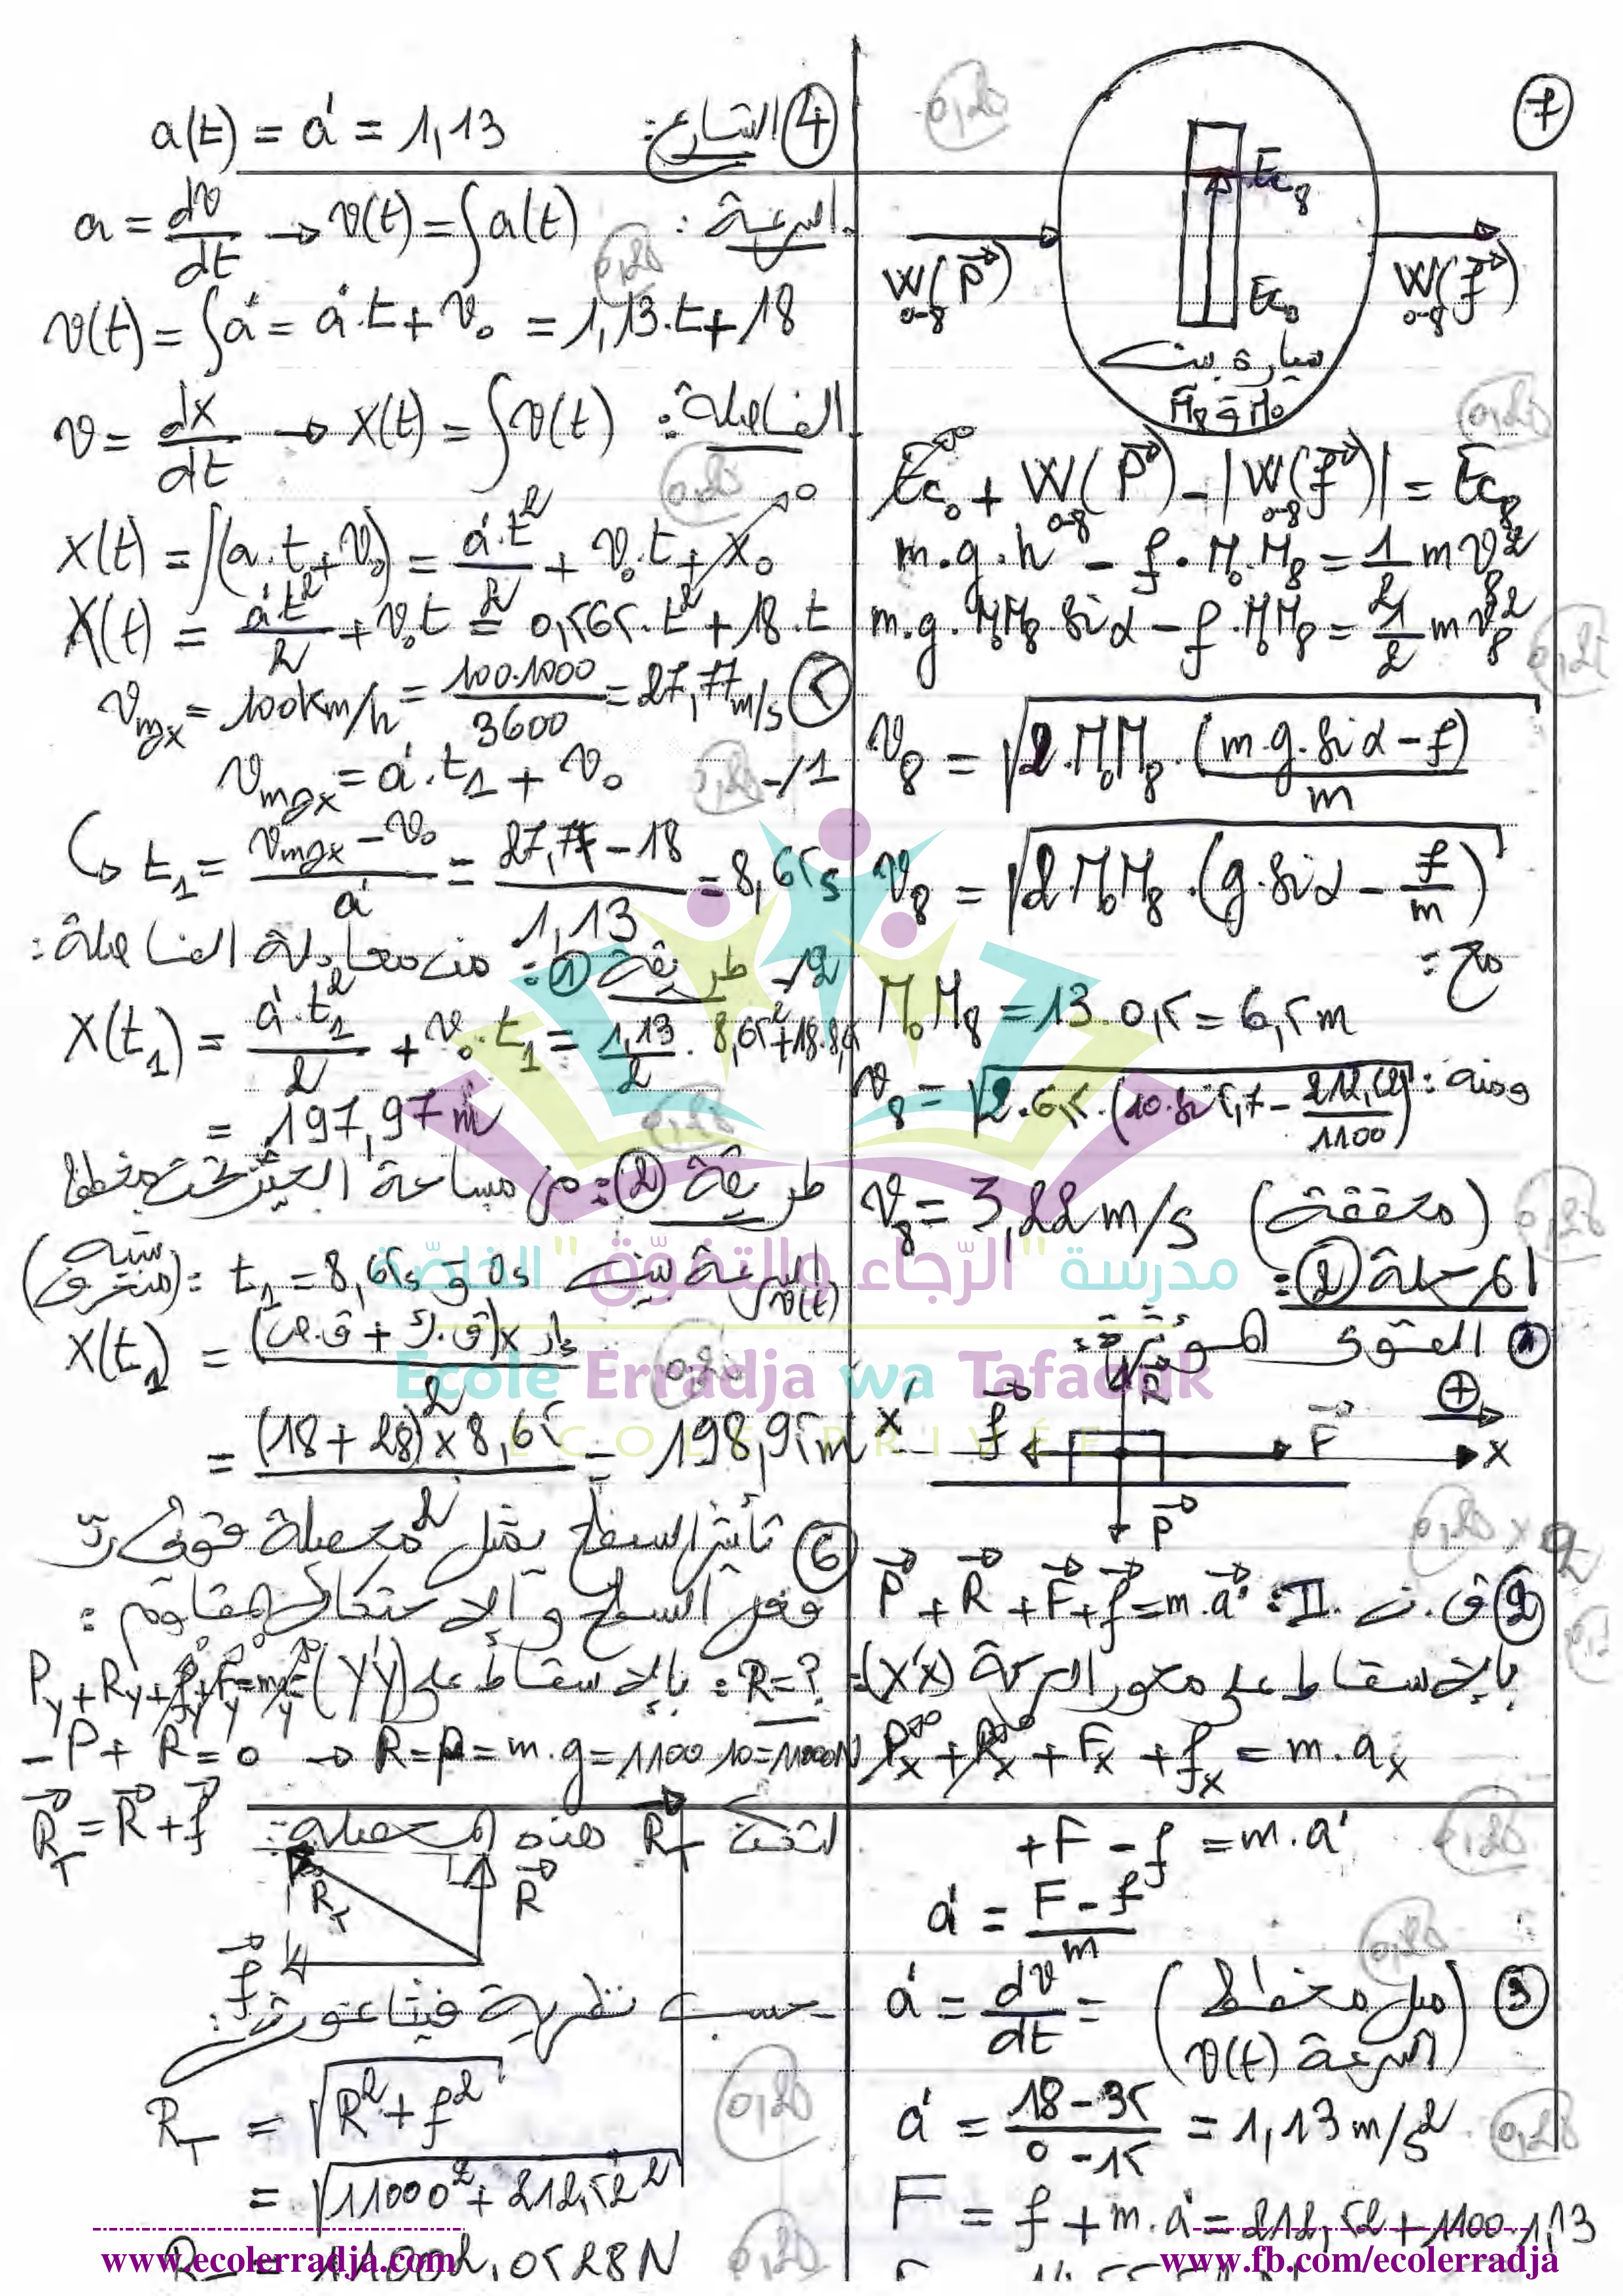 7
0,25
Ec8
W(P) 0-8
W(f) 0-8
Ec0
سيارة بين
M0 و M8
0,25
Ec0 + W(P) 0-8 - |W(f) 0-8| = Ec8
m.g.h - f.M0M8 = 1/2 m v8²
m.g.M0M8.sin α - f.M0M8 = 1/2 m v8²
0,25
v8 = √(2.M0M8.(m.g.sin α - f)/m)
v8 = √(2.M0M8.(g.sin α - f/m))
مع:
M0M8 = 13.0,5 = 6,5m
ومنه: v8 = √(2.6,5.(10.sin 5,7 - 212,52/1100))
v8 = 3,22 m/s (محققة)
0,25
المرحلة 2:
1 القوى المؤثرة:
R
f
F
+
x'
x
P
0,25 x 2
2 ق.ن.II: P + R + F + f = m.a'
بالإسقاط على محور الحركة (x'x):
Px + Rx + Fx + fx = m.ax
+F - f = m.a'
0,25
a' = (F - f)/m
0,25
3 a' = dv/dt = (ميل مخطط السرعة v(t))
a' = (18-35)/(0-15) = 1,13 m/s²
0,25
F = f + m.a' = 212,52 + 1100.1,13
4 التسارع: a(t) = a' = 1,13
السرعة: a = dv/dt → v(t) = ∫a(t)
0,25
v(t) = ∫a' = a'.t + v0 = 1,13.t + 18
الفاصلة: v = dx/dt → x(t) = ∫v(t)
0,25
x(t) = ∫(a.t + v0) = a'.t²/2 + v0.t + x0
x(t) = a't²/2 + v0t = 0,565.t² + 18.t
5 vmax = 100km/h = 100.1000/3600 = 27,77m/s
1/- vmax = a'.t1 + v0
0,25
↪ t1 = (vmax - v0)/a' = (27,77 - 18)/1,13 = 8,65s
2/- طريقة 1: من معادلة الفاصلة:
x(t1) = a'.t1²/2 + v0.t1 = 1,13/2 . 8,65² + 18.8,65
= 197,97m
0,25
طريقة 2: من مساحة الحيز تحت مخطط
السرعة v(t) بين 0s و t1 = 8,65s: (شبه منحرف)
x(t1) = (ق.ك + ق.ص) x إر / 2
0,25
= (18+28) x 8,65 / 2 = 198,95m
6 تأثير السطح يمثل محصلة قوتي رد
فعل السطح و الإحتكاك المقاوم:
R = ?: بالإسقاط على (y'y): Py + Ry + fy + Fy = may
-P + R = 0 → R = P = m.g = 1100.10 = 11000N
لتكن RT هذه المحصلة: RT = R + f
RT
R
f
حسب نظرية فيثاغورث:
RT = √(R² + f²)
0,25
= √(11000² + 212,52²)
RT = 11002,0528N
0,25
مدرسة "الرّجاء والتفوّق" الخاصّة
Ecole Erradja wa Tafaouk
ÉCOLE PRIVÉE
www.ecolerradja.com
www.fb.com/ecolerradja